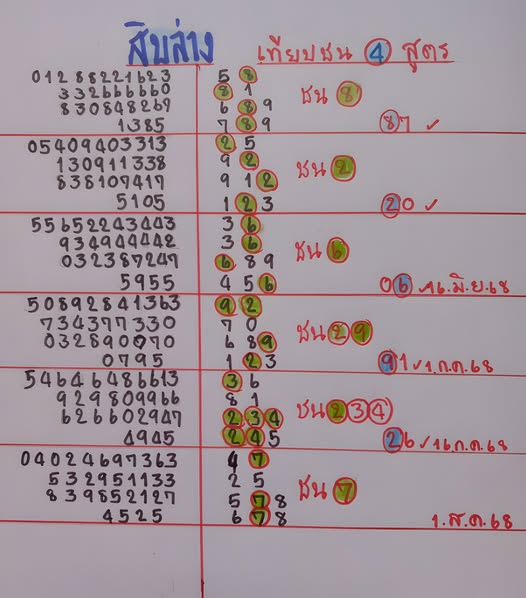 สิบล่าง เทียบชน 4 สูตร
01288221623 5 8
332666660 8 1 ชน 8
830848269 6 8 9
1385 7 8 9 87 ✓
05409403313 2 5
130911338 9 2 ชน 2
838107417 9 1 2
5105 1 2 3 20 ✓
55652243443 3 6
934944442 3 6 ชน 6
032387247 6 8 9
5955 4 5 6 06 ✓ 16.มิ.ย.68
50892841363 9 2
734377330 7 0 ชน 2 9
032890070 6 8 9
0795 1 2 3 91 ✓ 1.ก.ค.68
54646486613 3 6
929809966 8 1
626602947 2 3 4 ชน 2 3 4
4945 2 4 5 26 ✓ 16 ก.ค.68
04024697363 4 7
532951133 2 5 ชน 7
839852127 5 7 8
4525 6 7 8 1.ส.ค.68